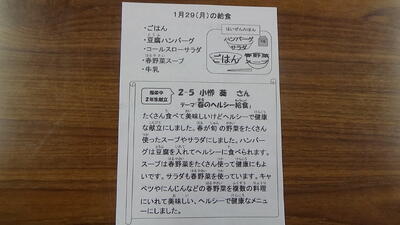 1月29(月)の給食
・ごはん
・豆腐ハンバーグ
・コールスローサラダ
・春野菜スープ
・牛乳
はいぜんのほん
ハンバーグ
サラダ
ごはん
春野菜
スープ
2年生献立
2-5 小栁 葵 さん
テーマ「春のヘルシー給食」
たくさん食べて美味しいけどヘルシーで健康
な献立にしました。春が旬の野菜をたくさん
使ったスープやサラダにしました。ハンバー
グは豆腐を入れてヘルシーに食べられます。
スープは春野菜をたくさん使って健康にもよ
いです。サラダも春野菜を使っています。キャ
ベツやにんじんなどの春野菜を複数の料理
にいれて美味しい、ヘルシーで健康なメニュ
ーにしました。